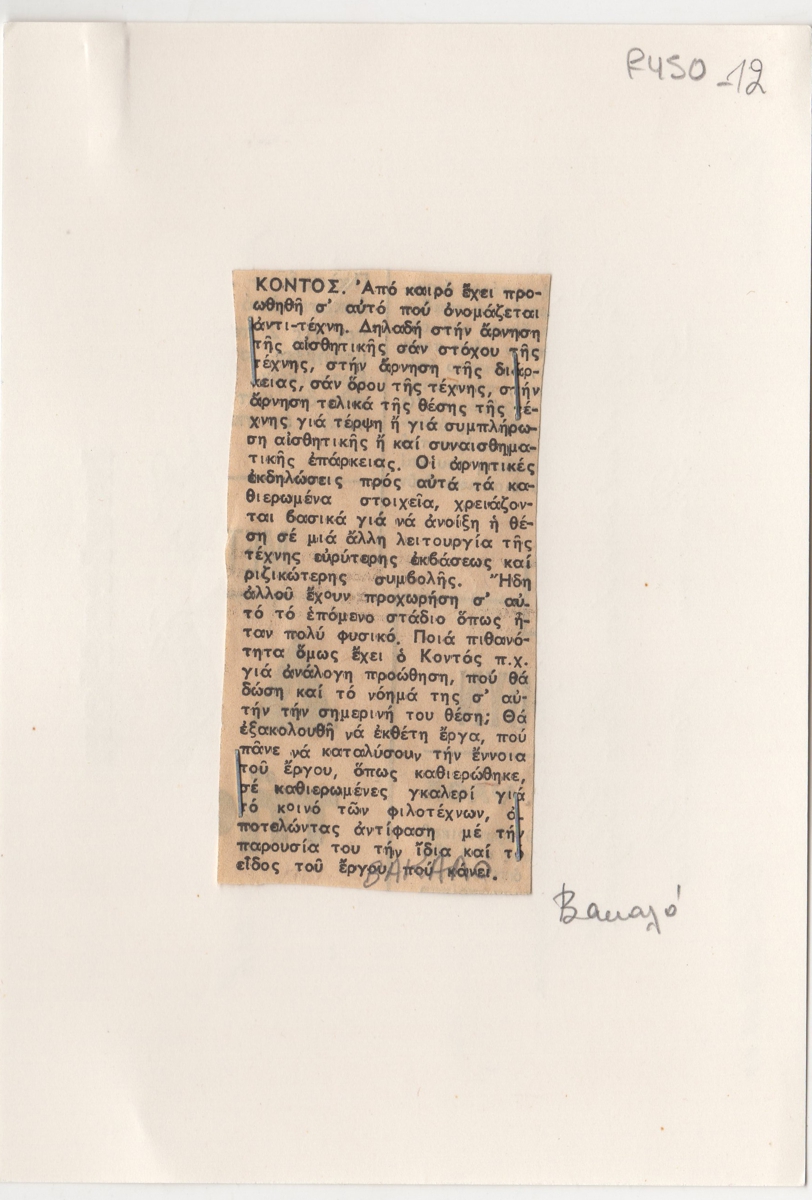 F450-12
ΚΟΝΤΟΣ. Ἀπό καιρό ἔχει προ-
ωθηθῆ σ' αὐτό πού ὀνομάζεται
ἀντι-τέχνη. Δηλαδή στήν ἄρνηση
τῆς αἰσθητικῆς σάν στόχου τῆς
τέχνης, στήν ἄρνηση τῆς διάρ-
κειας, σάν ὅρου τῆς τέχνης, στήν
ἄρνηση τελικά τῆς θέσης τῆς τέ-
χνης γιά τέρψη ἤ γιά συμπλήρω-
ση αἰσθητικῆς ἤ καί συναισθημα-
τικῆς ἐπάρκειας. Οἱ ἀρνητικές
ἐκδηλώσεις πρός αὐτά τά κα-
θιερωμένα στοιχεῖα, χρειάζον-
ται βασικά γιά νά ἀνοίξη ἡ θέ-
ση σέ μιά ἄλλη λειτουργία τῆς
τέχνης εὐρύτερης ἐκβάσεως καί
ριζικώτερης συμβολῆς. Ἤδη
ἀλλοῦ ἔχουν προχωρήση σ' αὐ-
τό τό ἑπόμενο στάδιο ὅπως ἤ-
ταν πολύ φυσικό. Ποιά πιθανό-
τητα ὅμως ἔχει ὁ Κοντός π.χ.
γιά ἀνάλογη προώθηση, πού θά
δώση καί τό νόημά της σ' αὐ-
τήν τήν σημερινή του θέση; Θά
ἐξακολουθῆ νά ἐκθέτη ἔργα, πού
πᾶνε νά καταλύσουν τήν ἔννοια
τοῦ ἔργου, ὅπως καθιερώθηκε,
σέ καθιερωμένες γκαλερί γιά
τό κοινό τῶν φιλοτέχνων, ἀ-
ποτελώντας ἀντίφαση μέ τήν
παρουσία του τήν ἴδια καί τό
εἶδος τοῦ ἔργου πού κάνει.
ΒΑΚΑΛΟ
Βακαλό